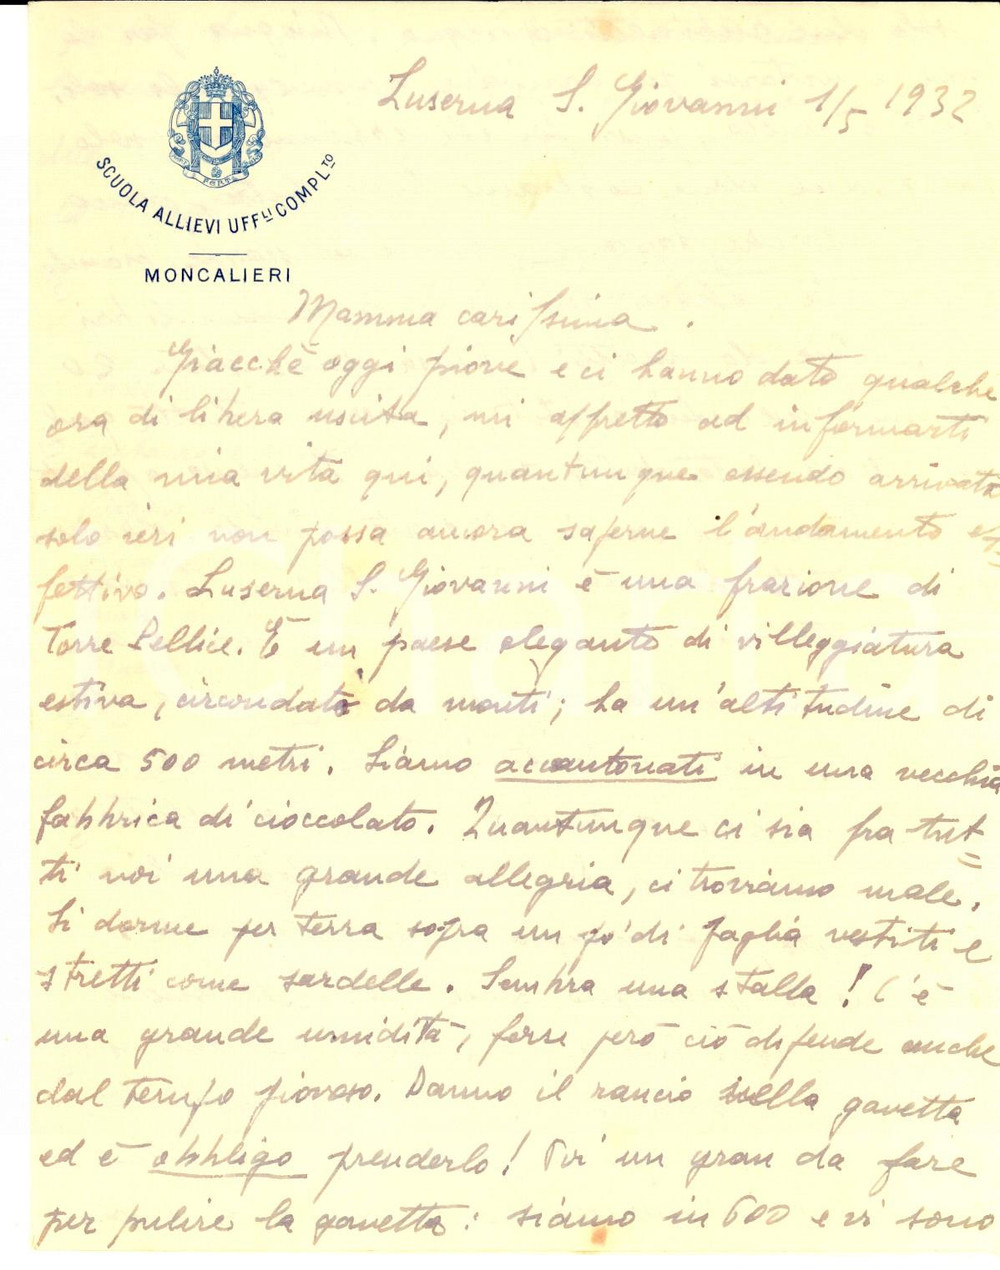 Luserna S. Giovanni 1/5 1932
SCUOLA ALLIEVI UFF.LI COMPL.TO
MONCALIERI
Mamma carissima.
Giacchè oggi piove e ci hanno dato qualche
ora di libera uscita, mi affretto ad informarti
della mia vita qui, quantunque essendo arrivato
solo ieri non possa ancora saperne l'andamento ef=
fettivo. Luserna S. Giovanni è una frazione di
Torre Pellice. È un paese elegante di villeggiatura
estiva, circondato da monti; ha un'altitudine di
circa 500 metri. Siamo accantonati in una vecchia
fabbrica di cioccolato. Quantunque ci sia fra tut=
ti noi una grande allegria, ci troviamo male.
Si dorme per terra sopra un po' di paglia vestiti e
stretti come sardelle. Sembra una stalla! C'è
una grande umidità, forse però ciò dipende anche
dal tempo piovoso. Danno il rancio nella gavetta
ed è obbligo prenderlo! Poi un gran da fare
per pulire la gavetta: siamo in 600 e vi sono